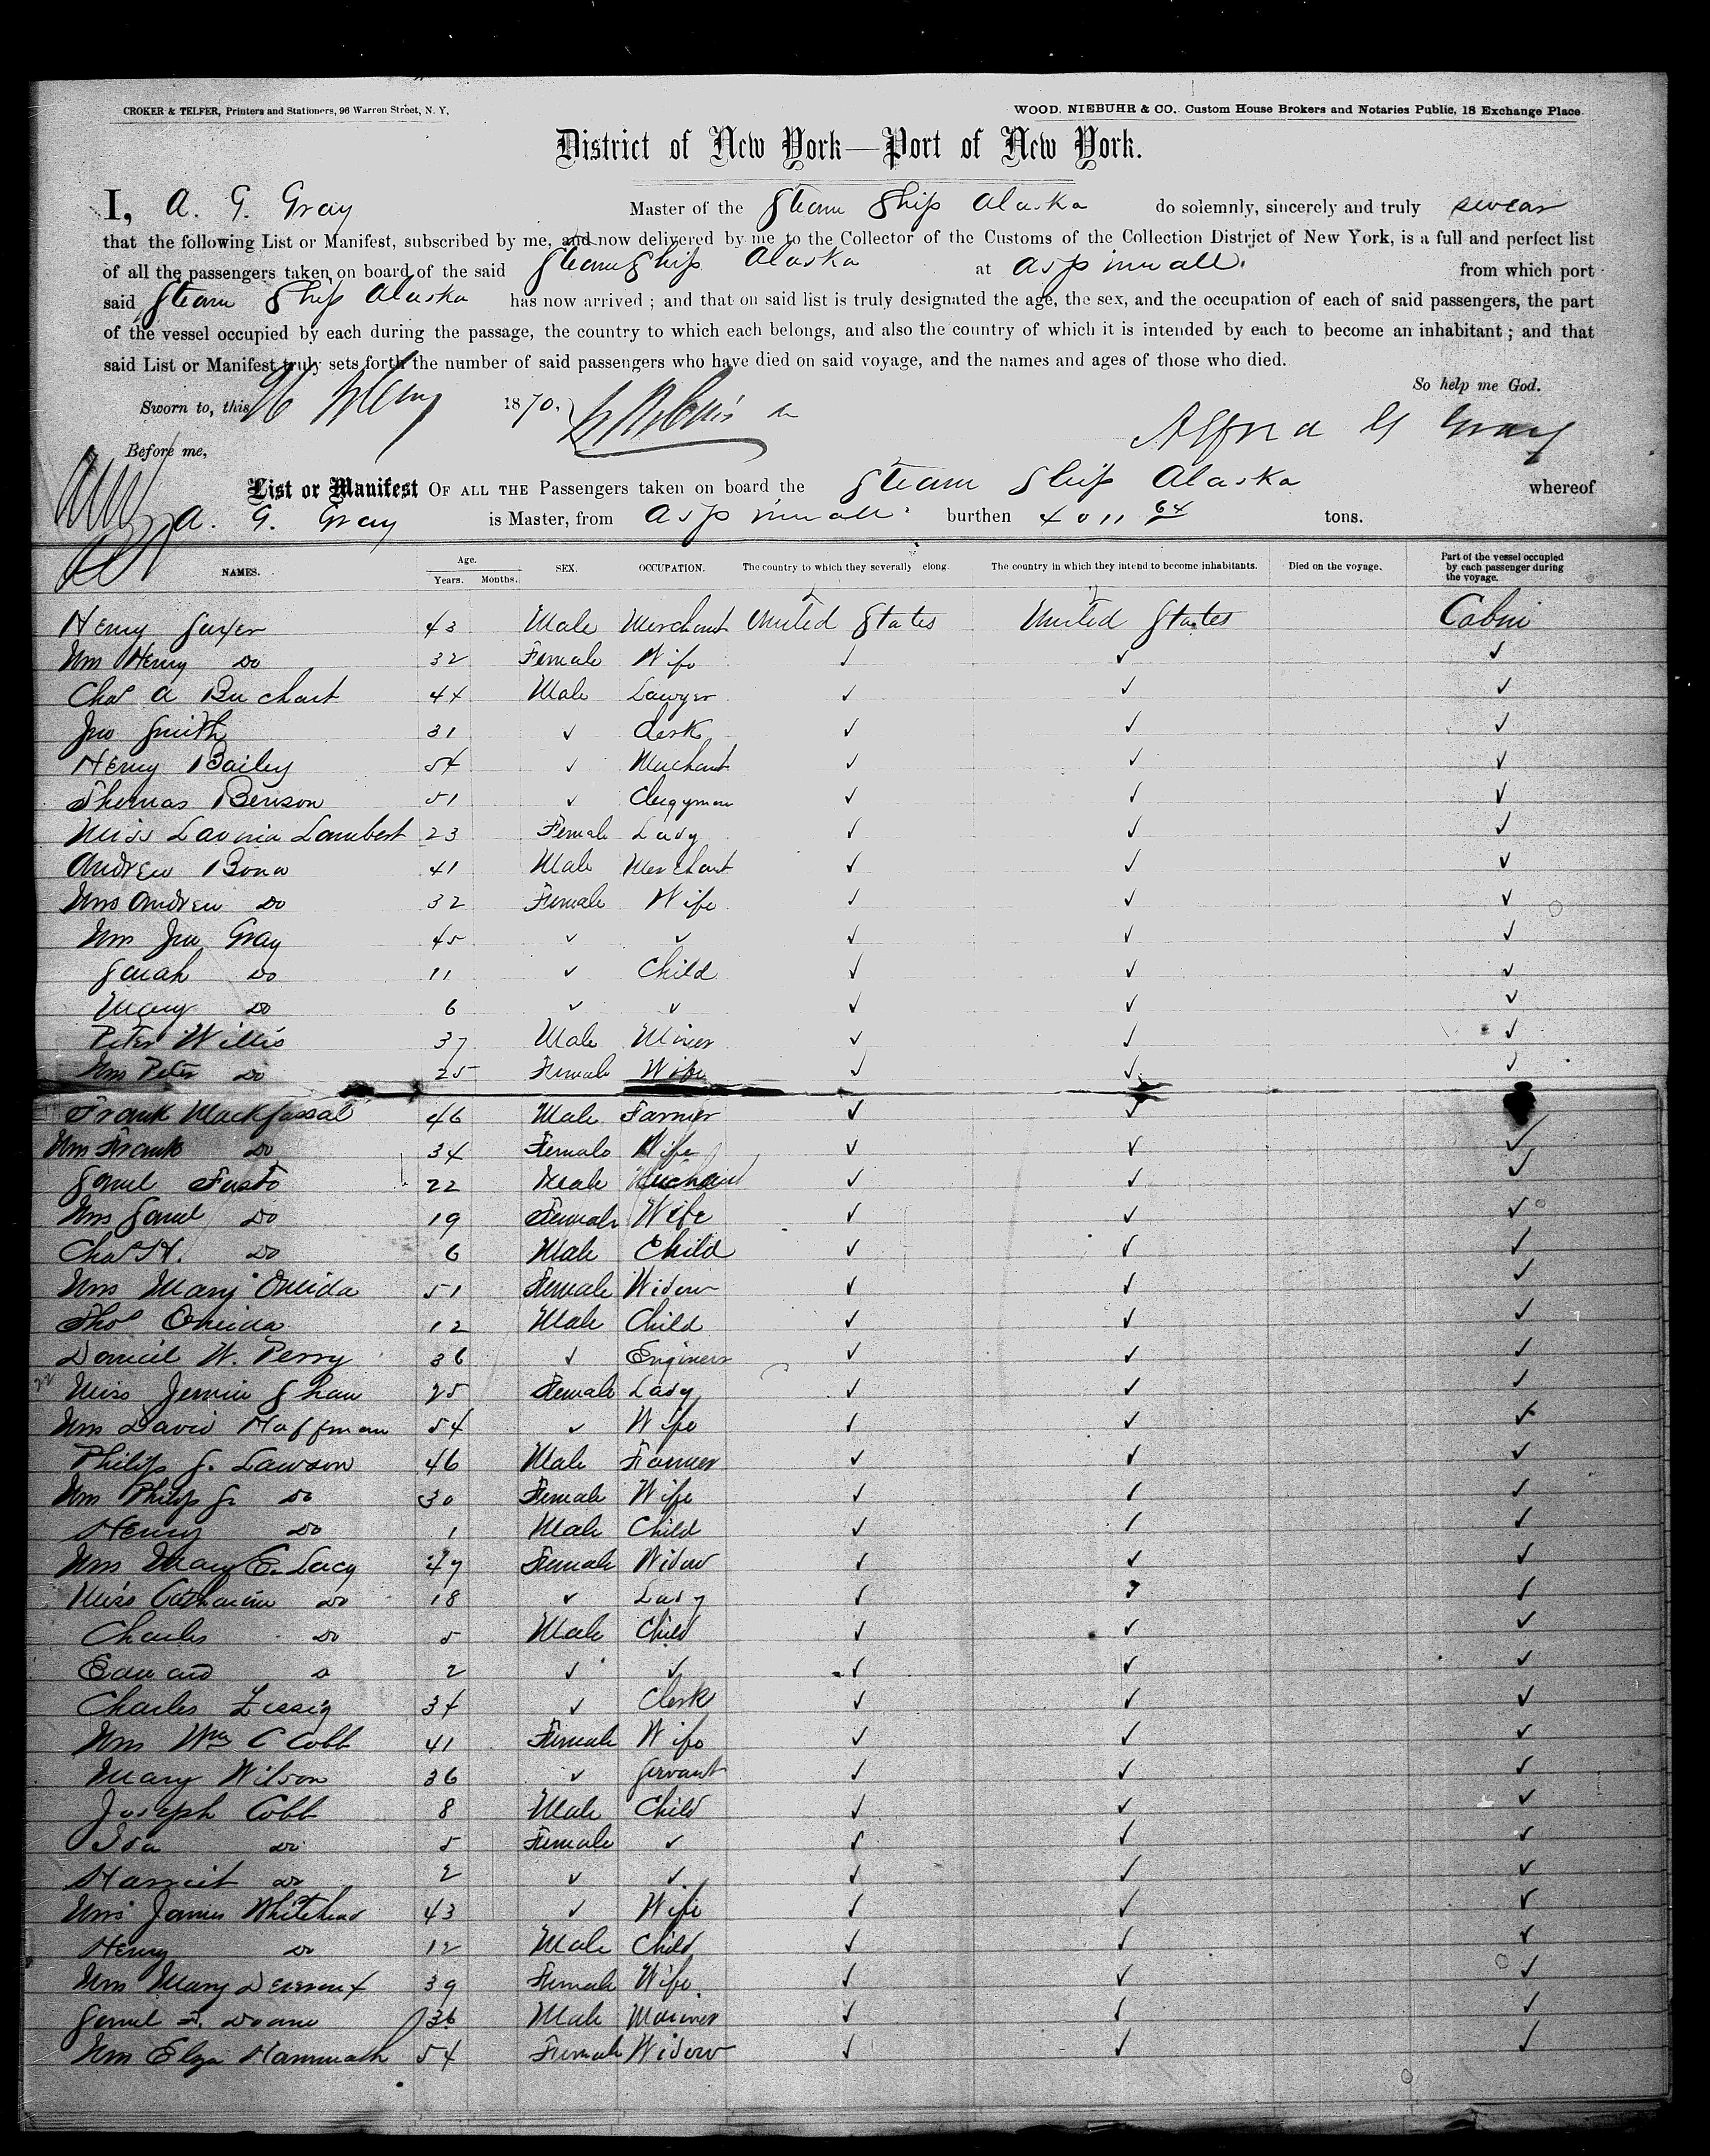 CROKER & TELFER, Printers and Stationers, 96 Warren Street, N. Y,
WOOD. NIEBUHR & CO. Custom House Brokers and Notaries Public, 18 Exchange Place.
District of New York—Port of New York.
I, A. G. Gray Master of the Steam Ship Alaska do solemnly, sincerely and truly swear
that the following List or Manifest, subscribed by me, and now delivered by me to the Collector of the Customs of the Collection District of New York, is a full and perfect list
of all the passengers taken on board of the said Steam Ship Alaska at Aspinwall. from which port
said Steam Ship Alaska has now arrived ; and that on said list is truly designated the age, the sex, and the occupation of each of said passengers, the part
of the vessel occupied by each during the passage, the country to which each belongs, and also the country of which it is intended by each to become an inhabitant ; and that
said List or Manifest truly sets forth the number of said passengers who have died on said voyage, and the names and ages of those who died.
So help me God.
Sworn to, this 1870.
Before me,
Alfred G Gray
List or Manifest OF ALL THE Passengers taken on board the Steam Ship Alaska whereof
A. G. Gray is Master, from Aspinwall. burthen 4011 64 tons.
NAMES. Age. Years. Months. SEX. OCCUPATION. The country to which they severally elong. The country in which they intend to become inhabitants. Died on the voyage. Part of the vessel occupied by each passenger during the voyage.
Henry 43 Male Merchant United States United States Cabin
Mrs Henry Do 32 Female Wife ✓ ✓ ✓
Chas A 44 Male Lawyer ✓ ✓ ✓
Jno Smith 31 ✓ Clerk ✓ ✓ ✓
Henry Bailey 54 ✓ Merchant ✓ ✓ ✓
Thomas Benson 51 ✓ Clergyman ✓ ✓ ✓
Miss Lavinia Lambert 23 Female Lady ✓ ✓ ✓
Andrew Bona 41 Male Merchant ✓ ✓ ✓
Mrs Andrew Do 32 Female Wife ✓ ✓ ✓
Mrs Jno Gray 45 ✓ ✓ ✓ ✓ ✓
Sarah Do 11 ✓ Child ✓ ✓ ✓
Mary Do 6 ✓ ✓ ✓ ✓ ✓
Peter Willis 37 Male Miner ✓ ✓ ✓
Mrs Peter Do 25 Female Wife ✓ ✓ ✓
Frank 46 Male Farmer ✓ ✓
Mrs Frank Do 34 Female Wife ✓ ✓ ✓
Saml 22 Male Merchant ✓ ✓ ✓
Mrs Saml Do 19 Female Wife ✓ ✓ ✓
Chas H. Do 6 Male Child ✓ ✓ ✓
Mrs Mary Oneida 51 Female Widow ✓ ✓ ✓
Thos Oneida 12 Male Child ✓ ✓ ✓
Daniel W. Perry 36 ✓ Engineer ✓ ✓ ✓
Miss Jennie Shaw 25 Female Lady ✓ ✓ ✓
Mrs David Hoffman 54 ✓ Wife ✓ ✓ ✓
Philip S. Lawson 46 Male Farmer ✓ ✓ ✓
Mrs Philip S. Do 30 Female Wife ✓ ✓ ✓
Henry Do 1 Male Child ✓ ✓ ✓
Mrs Mary E. Lacy 47 Female Widow ✓ ✓ ✓
Miss Catharine Do 18 ✓ Lady ✓ ✓ ✓
Charles Do 5 Male Child ✓ ✓ ✓
Edward Do 2 ✓ ✓ ✓ ✓ ✓
Charles Zissig 34 ✓ Clerk ✓ ✓ ✓
Mrs Wm C Cobb 41 Female Wife ✓ ✓ ✓
Mary Wilson 36 ✓ Servant ✓ ✓ ✓
Joseph Cobb 8 Male Child ✓ ✓ ✓
Ida Do 5 Female ✓ ✓ ✓ ✓
Harriet Do 2 ✓ ✓ ✓ ✓ ✓
Mrs James Whitehead 43 ✓ Wife ✓ ✓ ✓
Henry Do 12 Male Child ✓ ✓ ✓
Mrs Mary Devereux 39 Female Wife ✓ ✓ ✓
Saml Doane 36 Male Mariner ✓ ✓ ✓
Mrs Eliza 54 Female Widow ✓ ✓ ✓